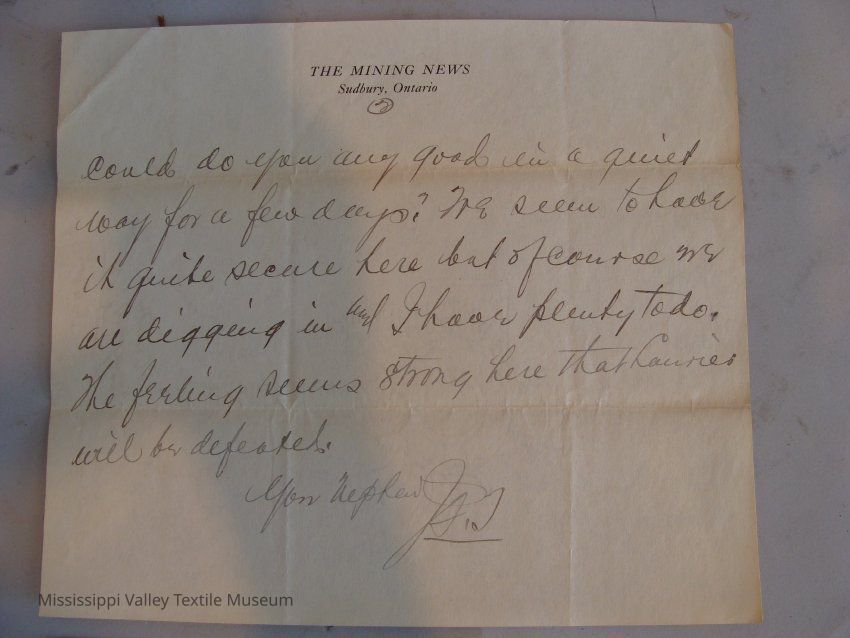 THE MINING NEWS
Sudbury, Ontario
2
could do you any good in a quiet
way for a few days? We seem to have
it quite secure here but of course we
are digging in and I have plenty to do.
The feeling seems strong here that Laurier
will be defeated.
Your Nephew
Mississippi Valley Textile Museum